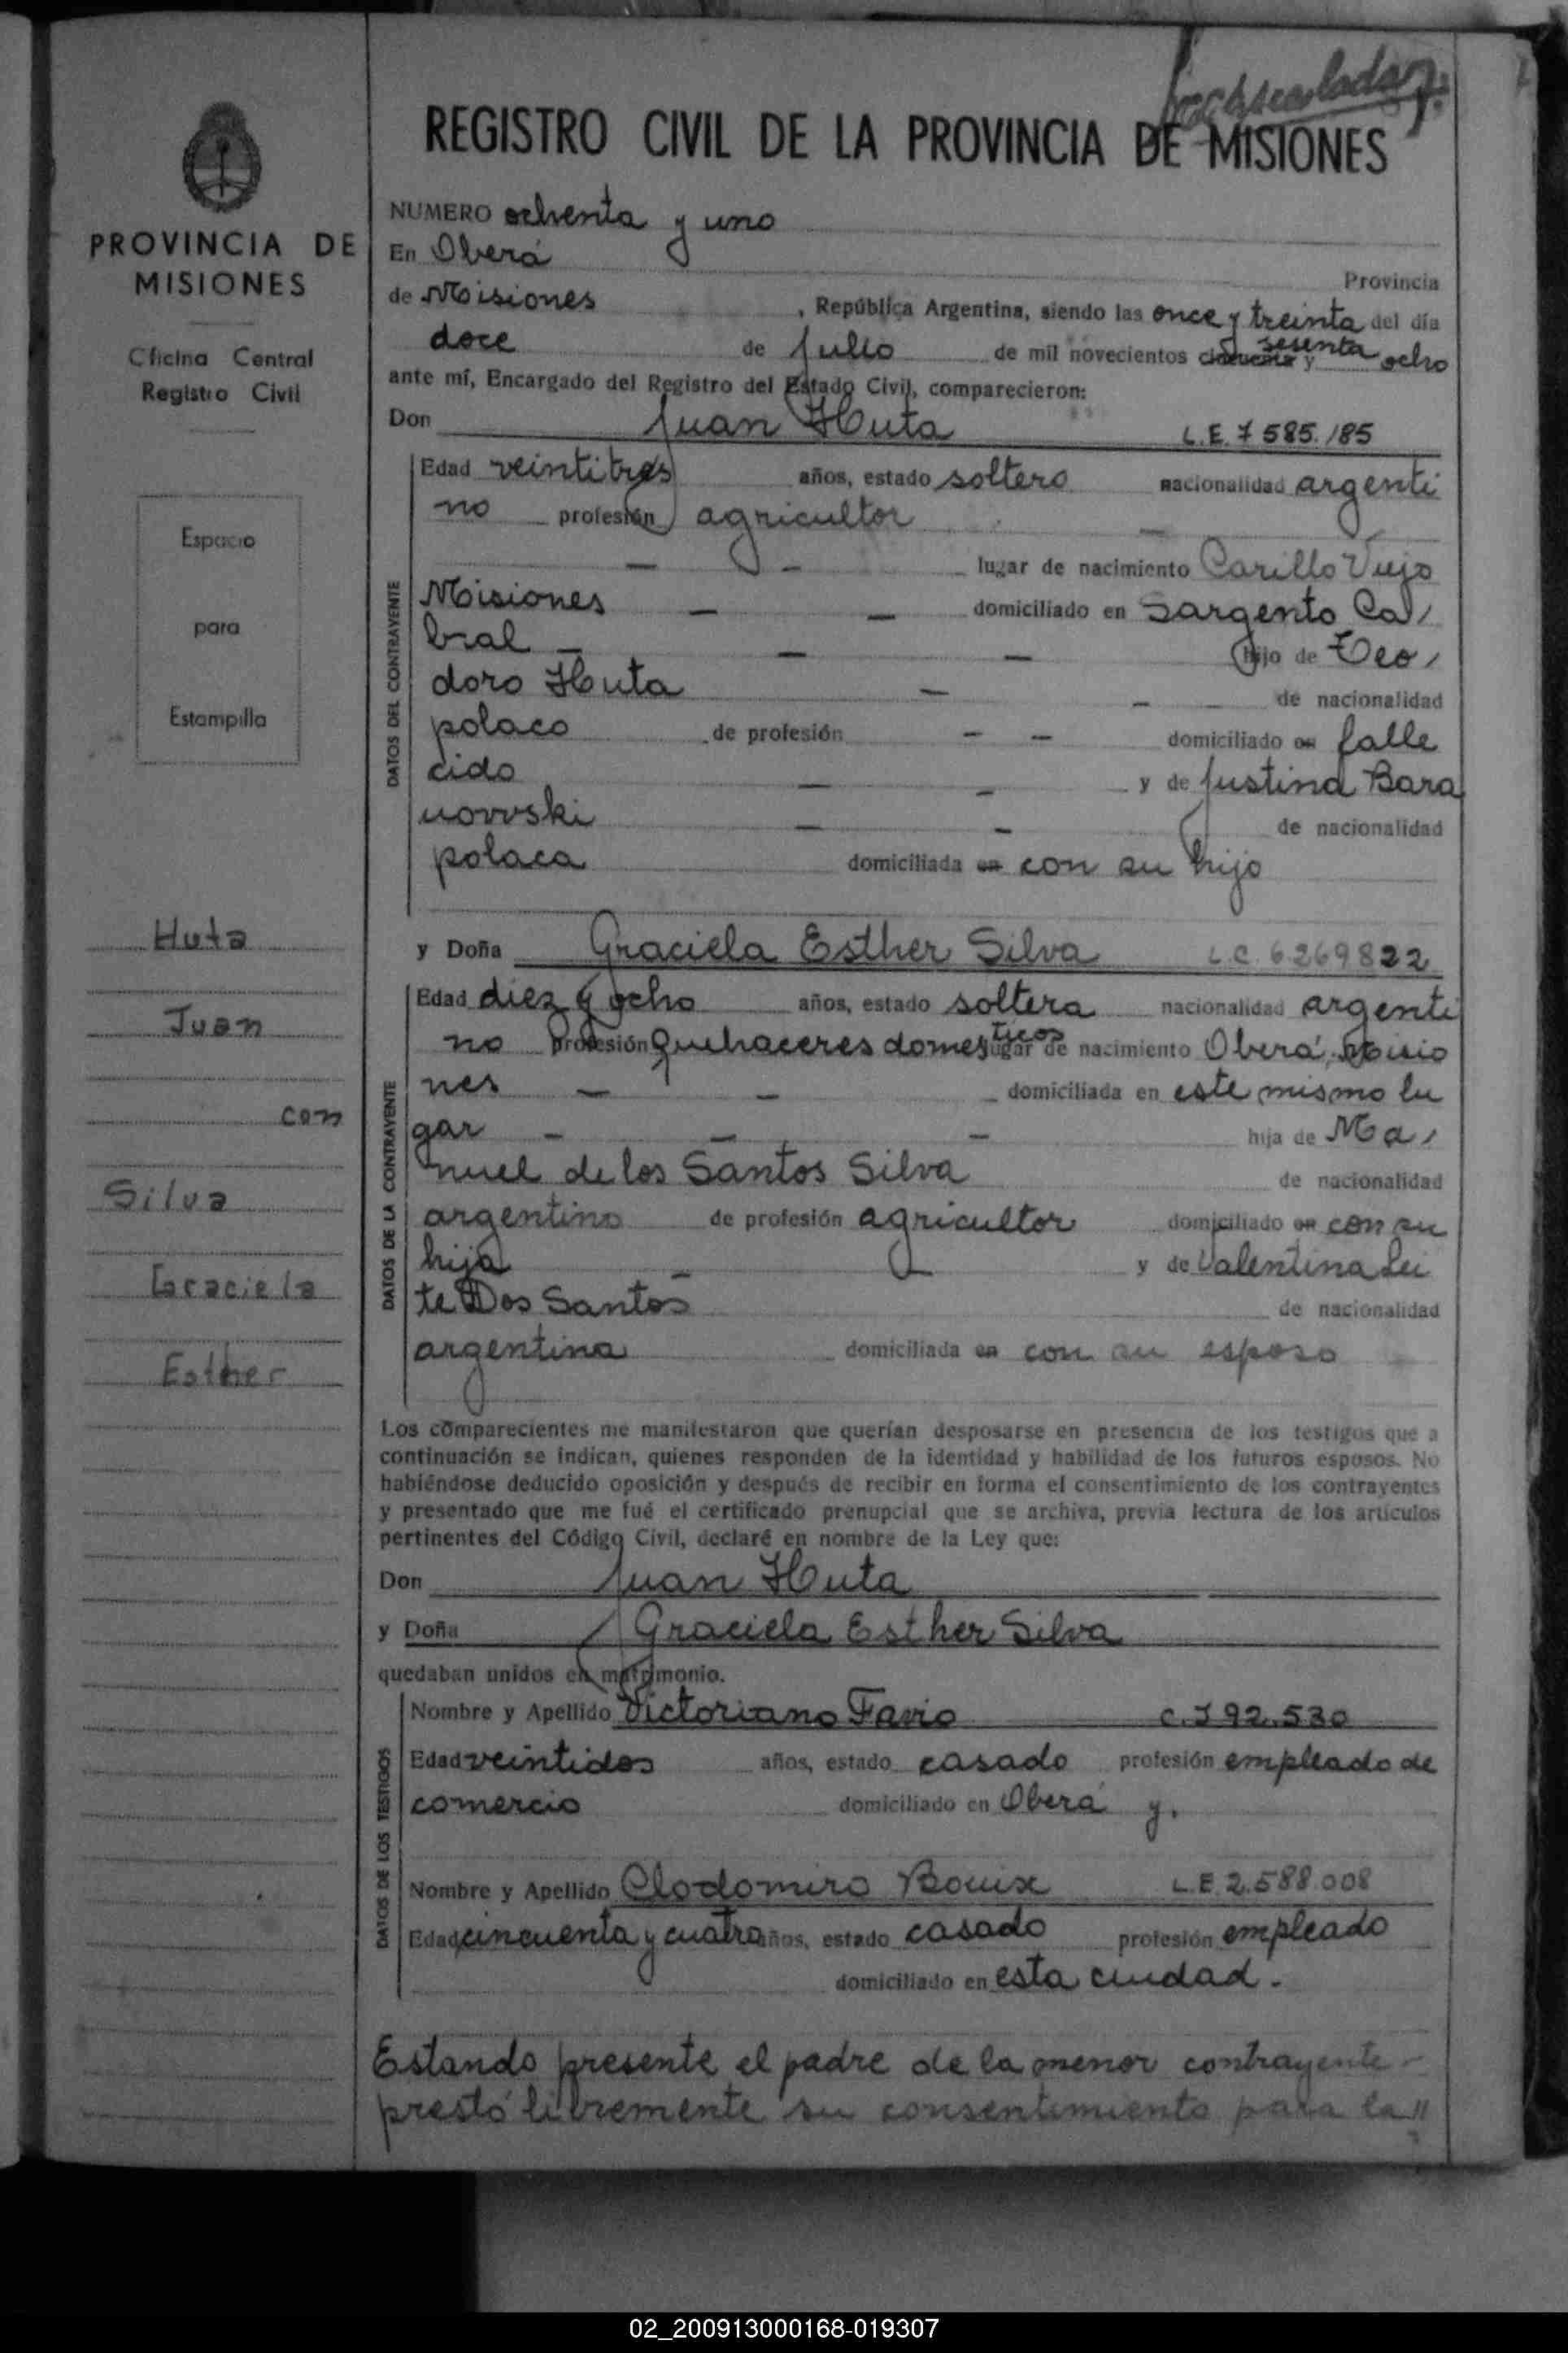 REGISTRO CIVIL DE LA PROVINCIA DE MISIONES
PROVINCIA DE
MISIONES
Oficina Central
Registro Civil
Espacio
para
Estampilla
Huta
Juan
con
Silva
Graciela
Esther
NUMERO ochenta y uno
En Oberá
Provincia
de Misiones, República Argentina, siendo las once y treinta del día
doce de Julio de mil novecientos cincuenta y sesenta ocho
ante mí, Encargado del Registro del Estado Civil, comparecieron:
Don Juan Huta L.E. 7 585.185
DATOS DEL CONTRAYENTE
Edad veintitres años, estado soltero nacionalidad argenti
no profesión agricultor —
— - lugar de nacimiento Carillo Viejo
Misiones — — domiciliado en Sargento Ca/
bral — — — hijo de Teo/
doro Huta — - de nacionalidad
polaco de profesión - - domiciliado en falle
cido — - y de Justina Bara
novvski — - de nacionalidad
polaca domiciliada en con su hijo
y Doña Graciela Esther Silva L.C. 6.269822
DATOS DE LA CONTRAYENTE
Edad diez y ocho años, estado soltera nacionalidad argenti
no profesión Quehaceres domesticos lugar de nacimiento Oberá, Misio
nes — - domiciliada en este mismo lu
gar - - - hija de Ma/
nuel de los Santos Silva de nacionalidad
argentino de profesión agricultor domiciliado en con su
hija - — y de Valentina Lei
te Dos Santos de nacionalidad
argentina domiciliada en con su esposo
Los comparecientes me manifestaron que querían desposarse en presencia de los testigos que a
continuación se indican, quienes responden de la identidad y habilidad de los futuros esposos. No
habiéndose deducido oposición y después de recibir en forma el consentimiento de los contrayentes
y presentado que me fué el certificado prenupcial que se archiva, previa lectura de los artículos
pertinentes del Código Civil, declaré en nombre de la Ley que:
Don Juan Huta
y Doña Graciela Esther Silva
quedaban unidos en matrimonio.
DATOS DE LOS TESTIGOS
Nombre y Apellido Victoriano Favio C.I 92.530
Edad veintidos años, estado casado profesión empleado de
comercio domiciliado en Oberá y.
Nombre y Apellido Clodomiro Bouix L.E. 2.588.008
Edad cincuenta y cuatro años, estado casado profesión empleado
domiciliado en esta ciudad.
Estando presente el padre de la menor contrayente -
prestó libremente su consentimiento para la //
02_200913000168-019307